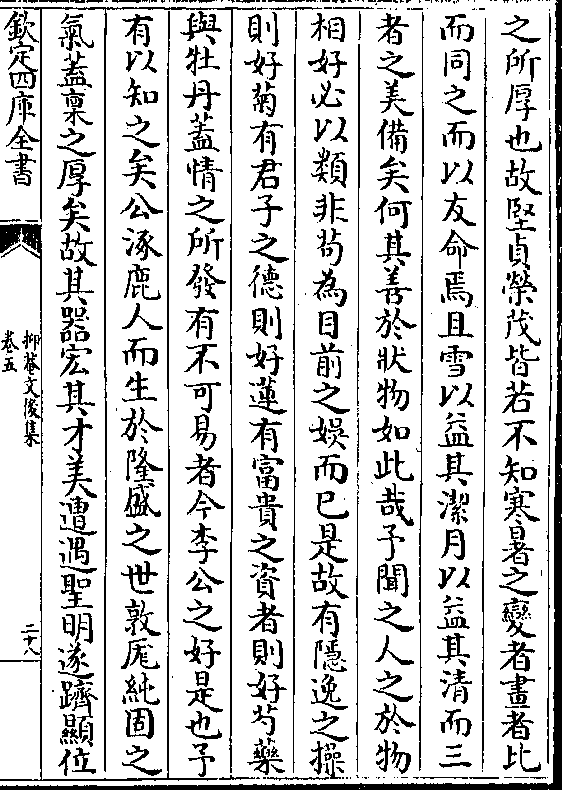 之所厚也故堅貞榮茂皆若不知寒暑之變者畫者比
而同之而以友命焉且雪以益其潔月以益其清而三
者之美備矣何其善於狀物如此哉予聞之人之於物
相好必以類非苟為目前之娛而已是故有隱逸之操
則好菊有君子之德則好蓮有富貴之資者則好芍藥
與牡丹蓋情之所發有不可易者今李公之好是也予
有以知之矣公涿鹿人而生於隆盛之世敦厖純固之
氣蓋稟之厚矣故其器宏其才美遭遇聖明遂躋顯位
欽定四庫全書
抑菴文後集
卷五
二十八